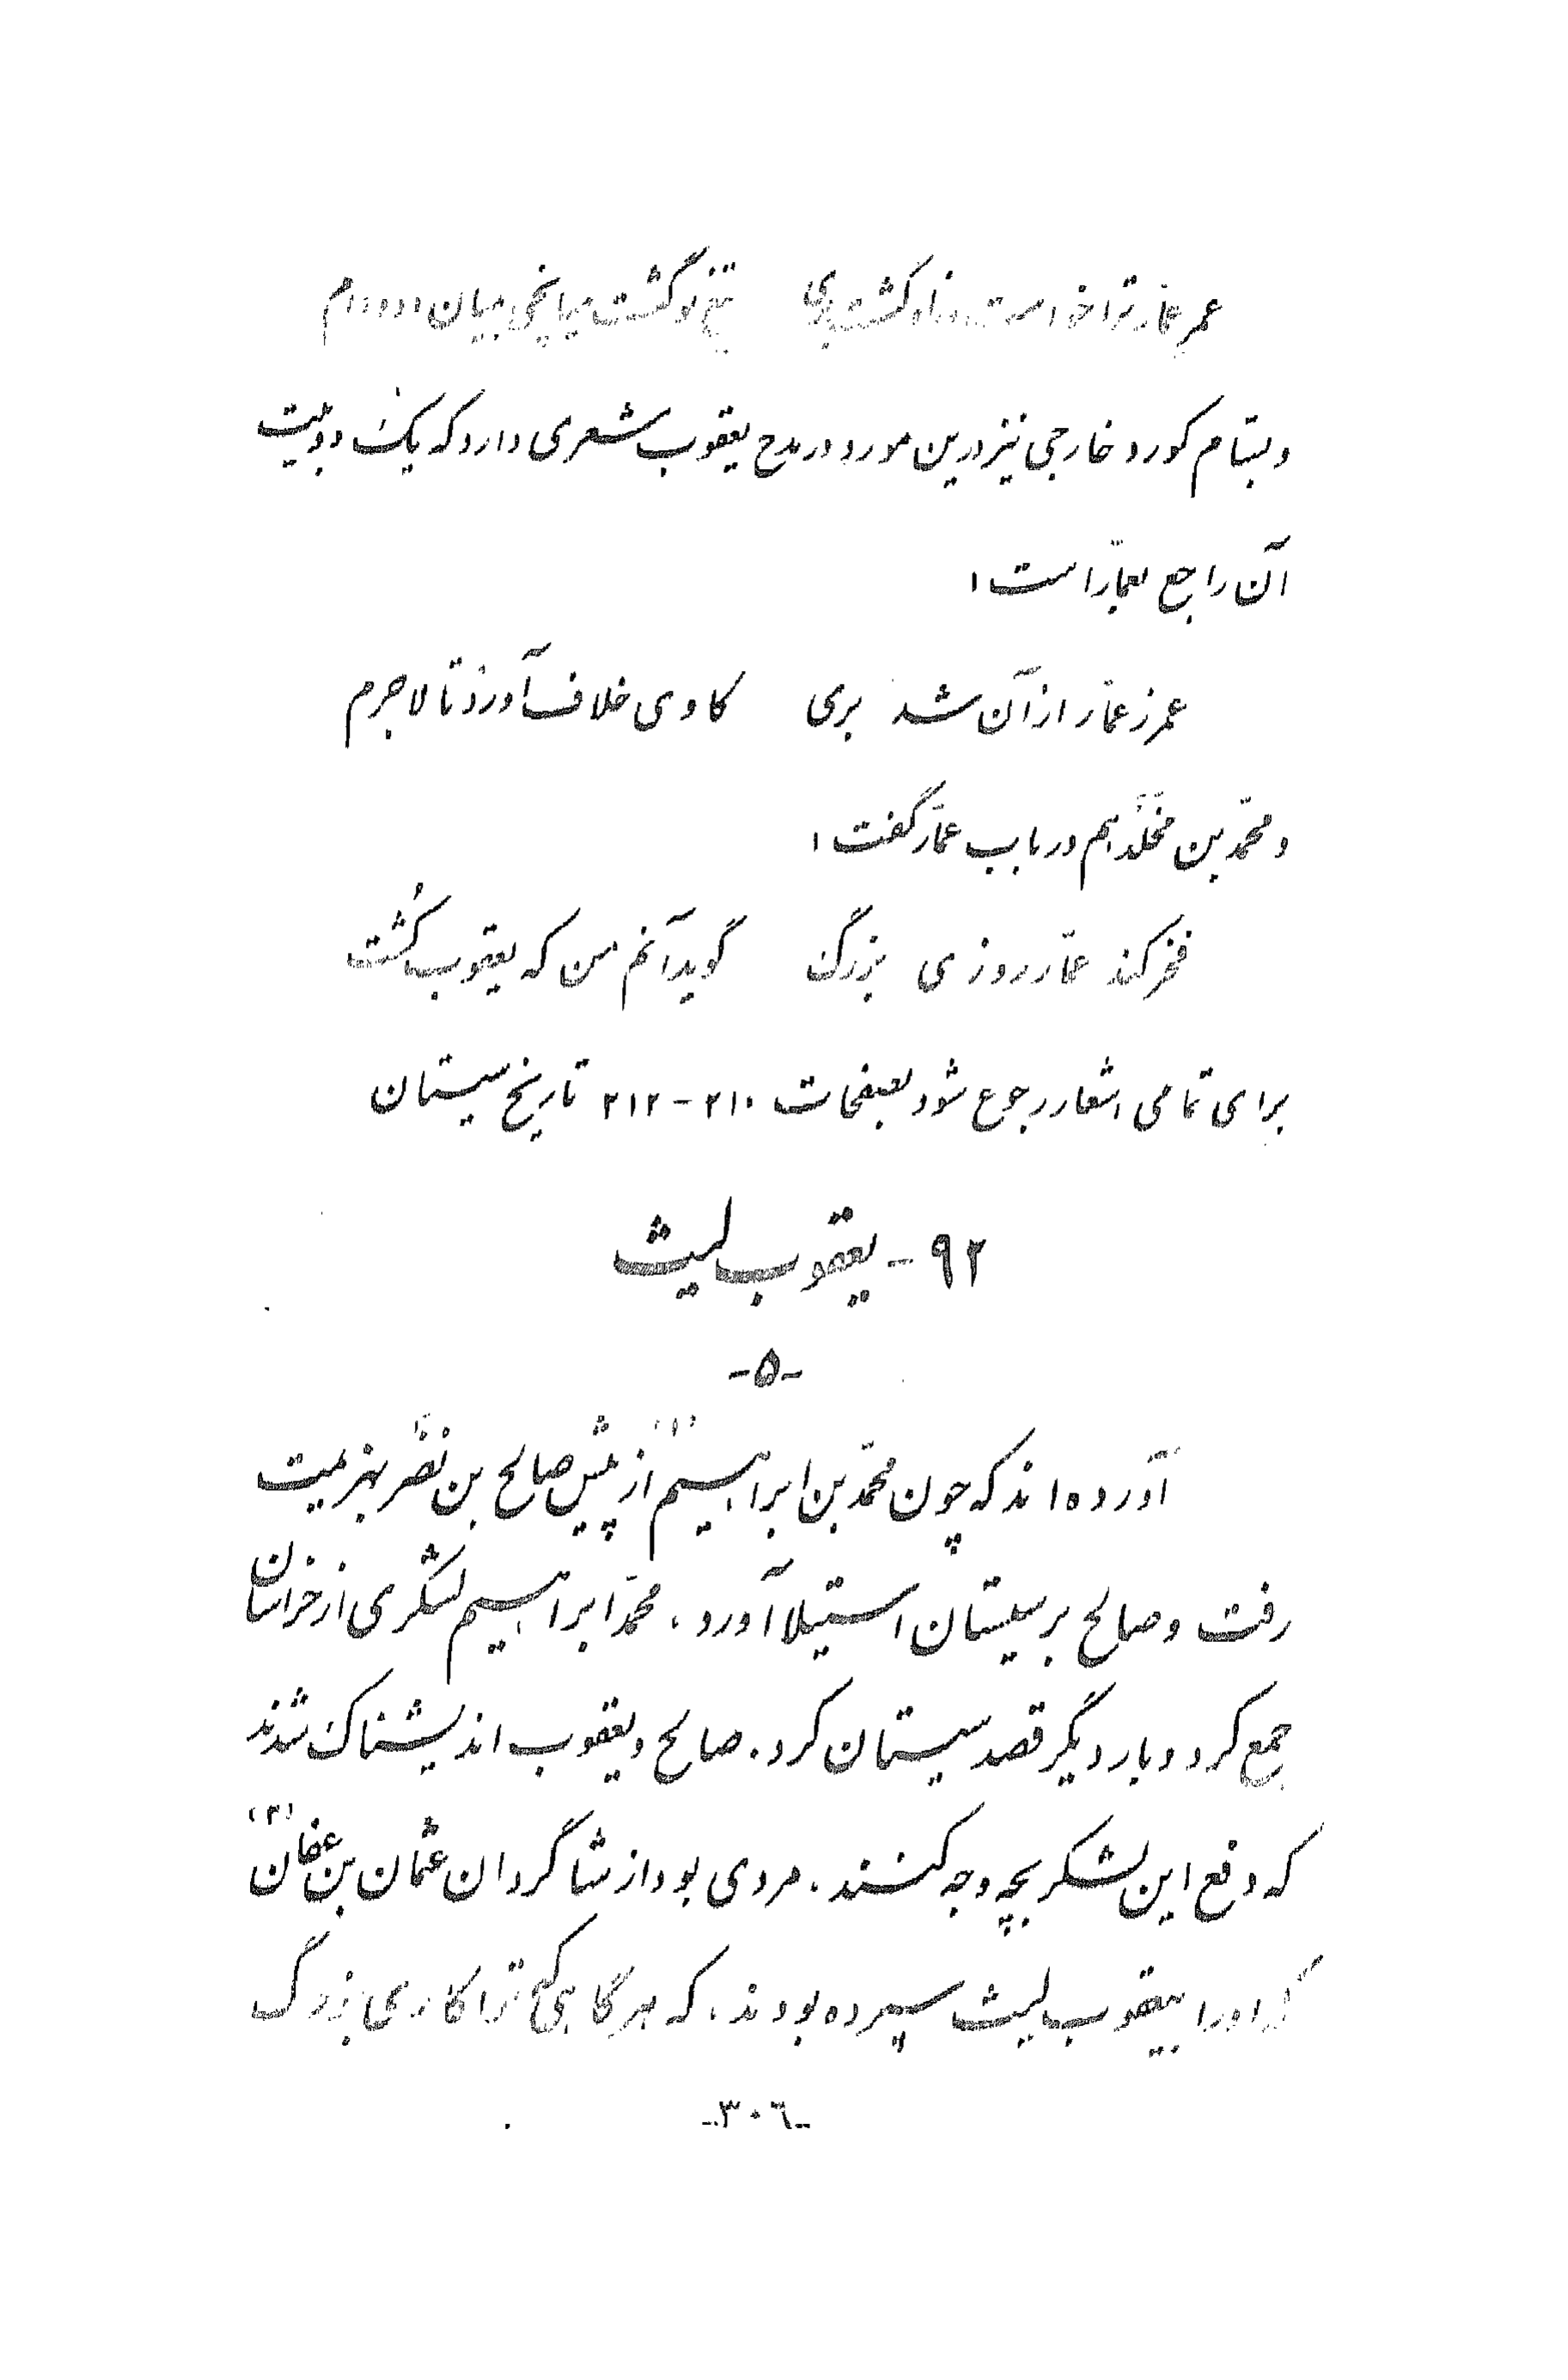 عمر عمّار ترا خواست و زو گشت بری    تیغ تو گشت میانجی بمیان دد و دام
و بسّام کورد خارجی نیز درین مورد در مدح یعقوب شعری دارد که یک دو بیت
آن راجع بعمّار است :
عمر ز عمّار از آن شد بری    کاوی خلاف آورد تا لاجرم
و محمّد بن مخلّد هم در باب عمّار گفت :
فخر کند عمّار روزی بزرگ    گوید آنم من که یعقوب کُشت
برای تمامی اشعار رجوع شود بصفحات ۲۱۰ - ۲۱۲ تاریخ سیستان
۹۲ - یعقوب لیث
-۵-
آورده‌اند که چون محمّد بن ابراهیم (۱) از پیش صالح بن نصر بهزیمت
رفت و صالح بر سیستان استیلا آورد ، محمّد ابراهیم لشکری از خراسان
جمع کرد و بار دیگر قصد سیستان کرد . صالح و یعقوب اندیشناک شدند
که دفع این لشکر بچه وجه کنند . مردی بود از شاگردان عثمان بن عفان (۲)
که او را بیعقوب لیث سپرده بودند ، که هر گاهی که ترا کاری بزرگ
-۳۰۶-